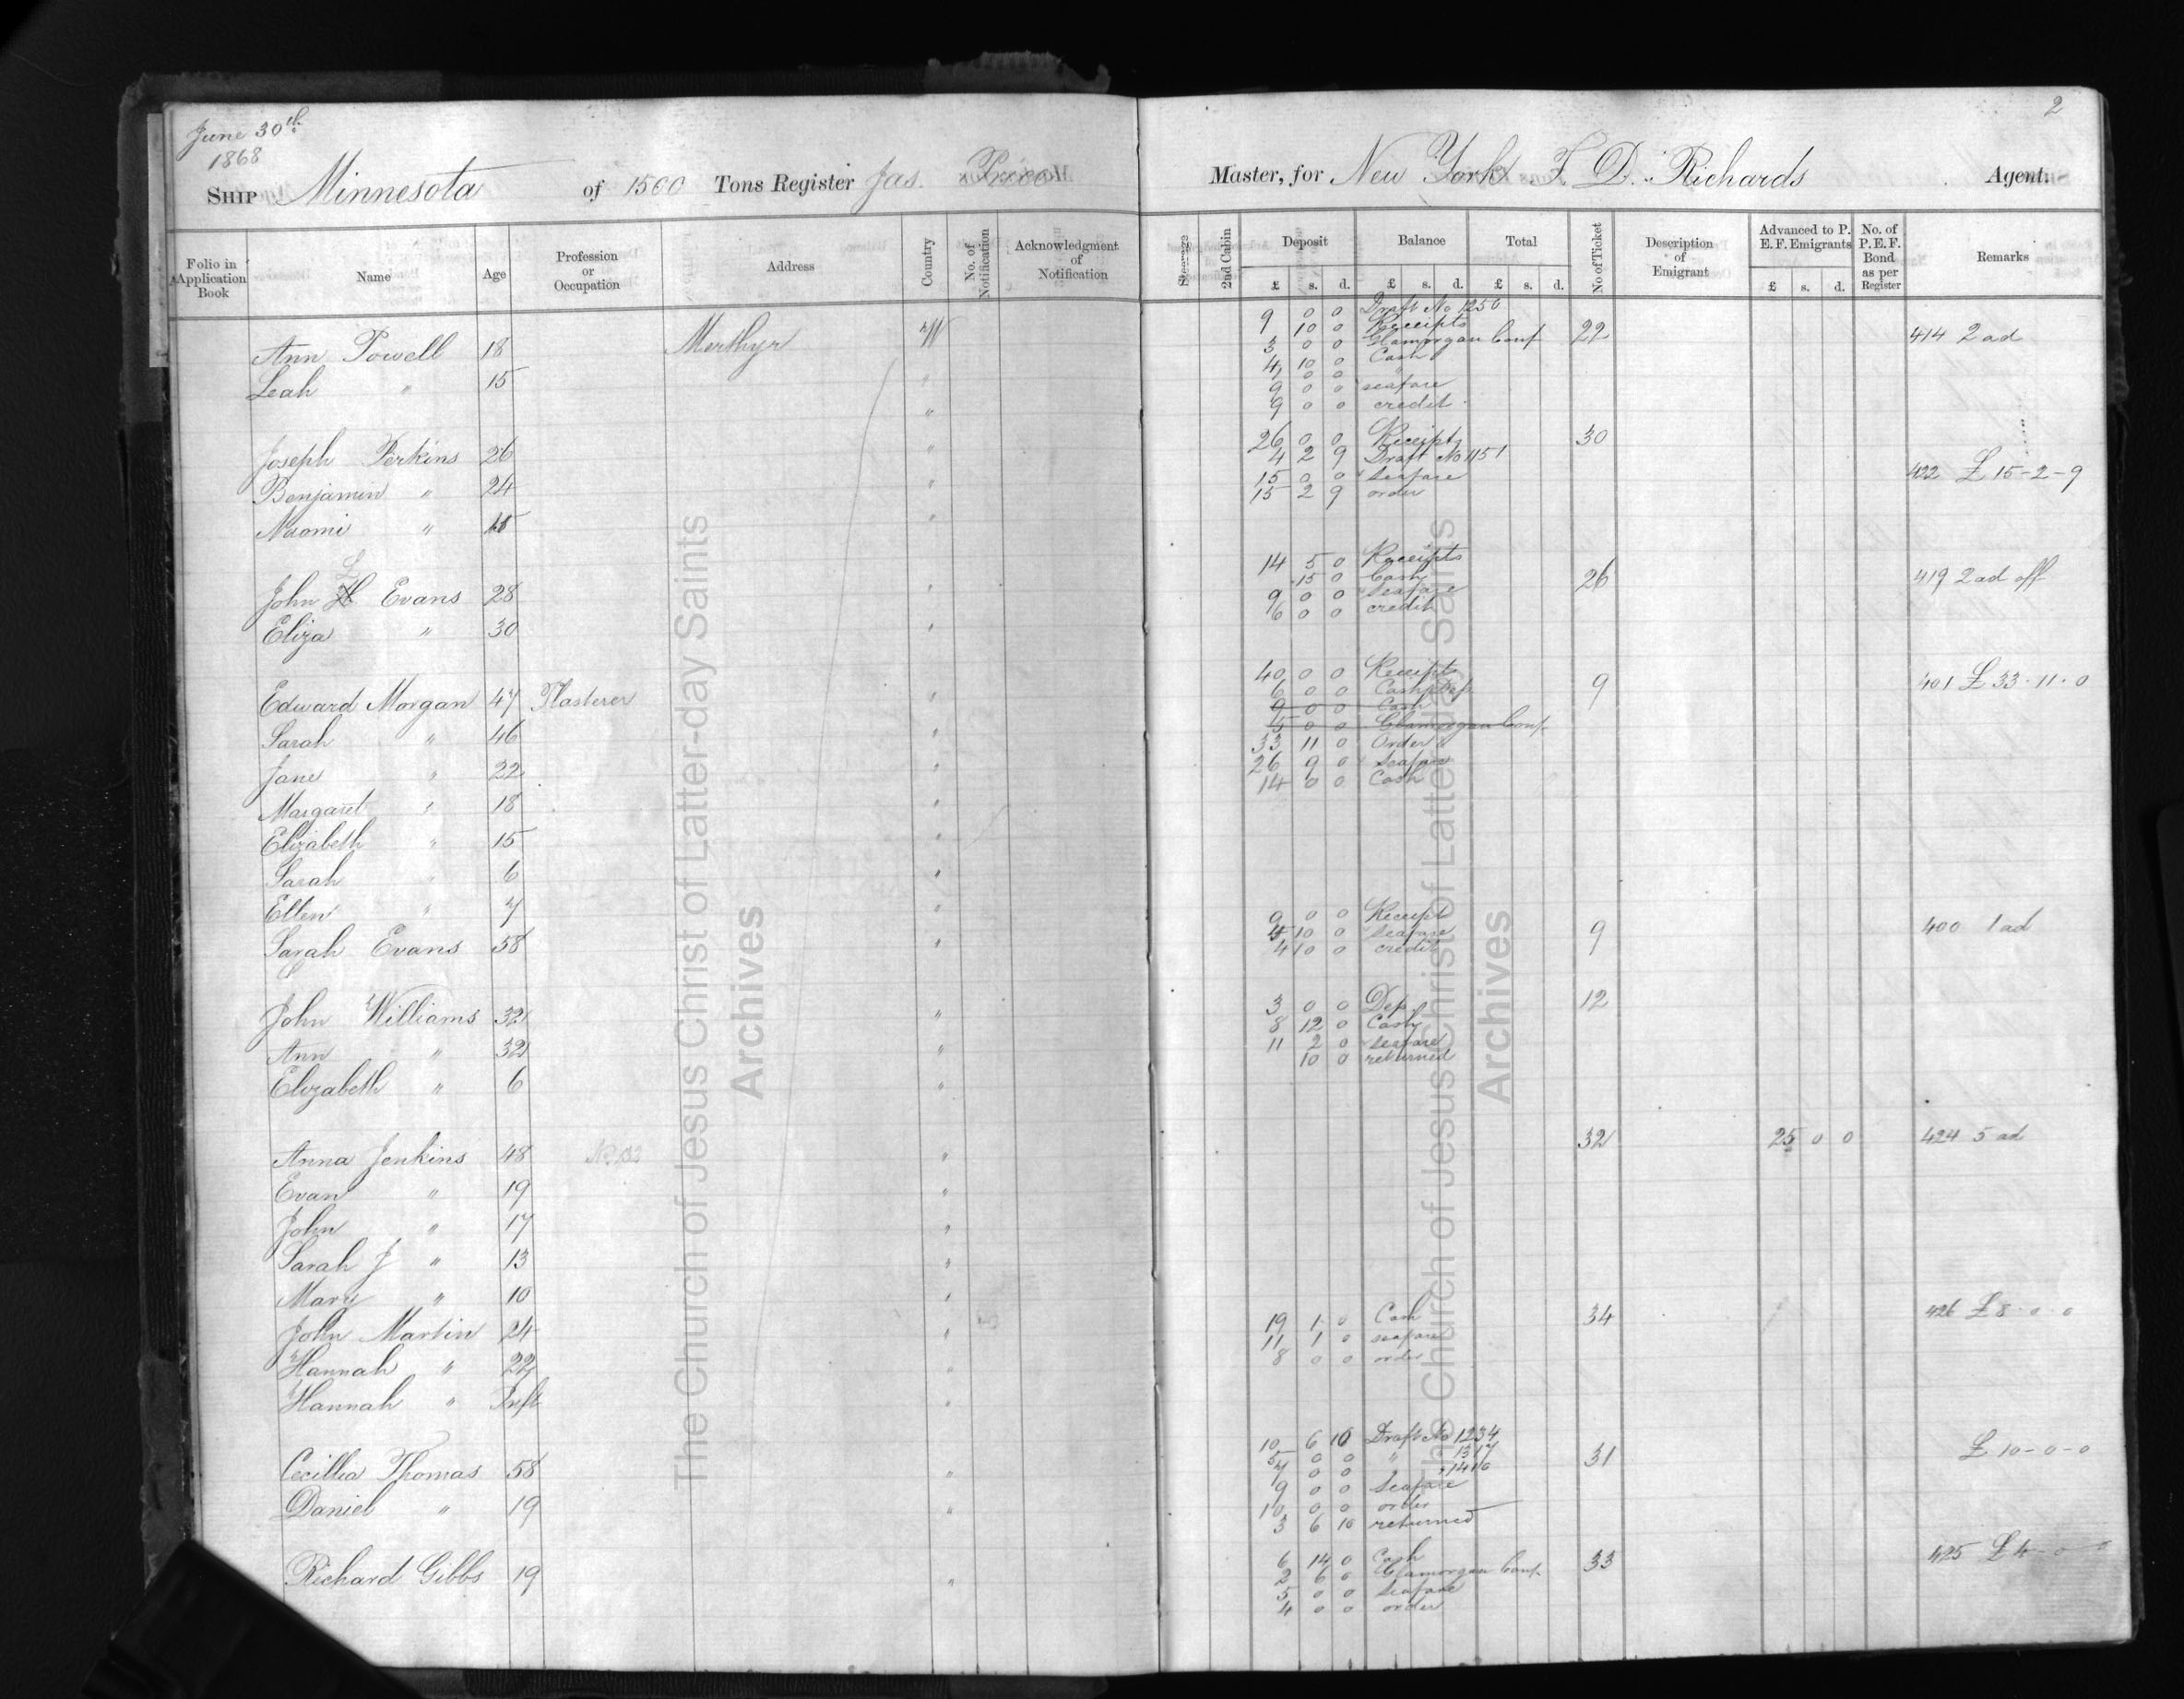 June 30th
1868
2
SHIP Minnesota of 1500 Tons Register Jas. Price Master, for New York F. D. Richards Agent.
Folio in Application Book Name Age Profession or Occupation Address Country No. of Notification Acknowledgment of Notification Steerage 2nd Cabin Deposit Balance Total No of Ticket Description of Emigrant Advanced to P. E. F. Emigrants No. of P. E. F. Bond as per Register Remarks
£ s. d. £ s. d. £ s. d. £ s. d.
9 0 0 Draft No 1250
Ann Powell 18 Merthyr W 9 10 0 Receipts 22 414 2 ad
3 0 0 Glamorgan Conf
4 10 0 Cash
Leah " 15 " 0 0 "
9 0 0 seafare
" 9 0 0 credit
Joseph Perkins 26 " 26 0 0 Receipts 30
4 2 9 Draft No 1151
Benjamin " 24 " 15 0 0 Seafare 422 £15-2-9
15 2 9 order
Naomi " "
14 5 0 Receipts
15 0 Cash
L
John H Evans 28 " 9 0 0 Seafare 26 419 2 ad off
6 0 0 credit
Eliza " 30 "
40 0 0 Receipts
Edward Morgan 47 Plasterer " 6 0 0 Cash Dep 9 401 £33.11.0
9 0 0 Cash
Sarah " 46 " 5 0 0 Glamorgan Conf
33 11 0 Order
Jane " 22 " 26 9 0 Seafare
14 0 0 Cash
Margaret " 18 "
Elizabeth " 15 "
Sarah " 6 "
Ellen " 7 " 9 0 0 Receipt
Sarah Evans 58 " 4 10 0 Seafare 9 400 1 ad
4 10 0 credit
John Williams 32 " 3 0 0 Dep. 12
8 12 0 Cash
Ann " 32 " 11 2 0 seafare
10 0 returned
Elizabeth " 6 "
Anna Jenkins 48 " 32 25 0 0 424 5 ad
Evan " 19 "
John " 17 "
Sarah J " 13 "
Mary " 10 "
John Martin 24 " 19 1 0 Cash 34 426 £8.0.0
11 1 0 seafare
Hannah " 22 " 8 0 0 order
Hannah " Inft "
10 6 10 Draft No 1234
5 0 0 " 1317
Cecillia Thomas 58 " 7 0 0 " 1410 31 £10-0-0
9 0 0 Seafare
Daniel " 19 " 10 0 0 order
3 6 10 returned
6 14 0 Cash
Richard Gibbs 19 " 2 6 0 Glamorgan Conf 33 425 £4-0-0
5 0 0 Seafare
4 0 0 order
The Church of Jesus Christ of Latter-day Saints
Archives
The Church of Jesus Christ of Latter-day Saints
Archives